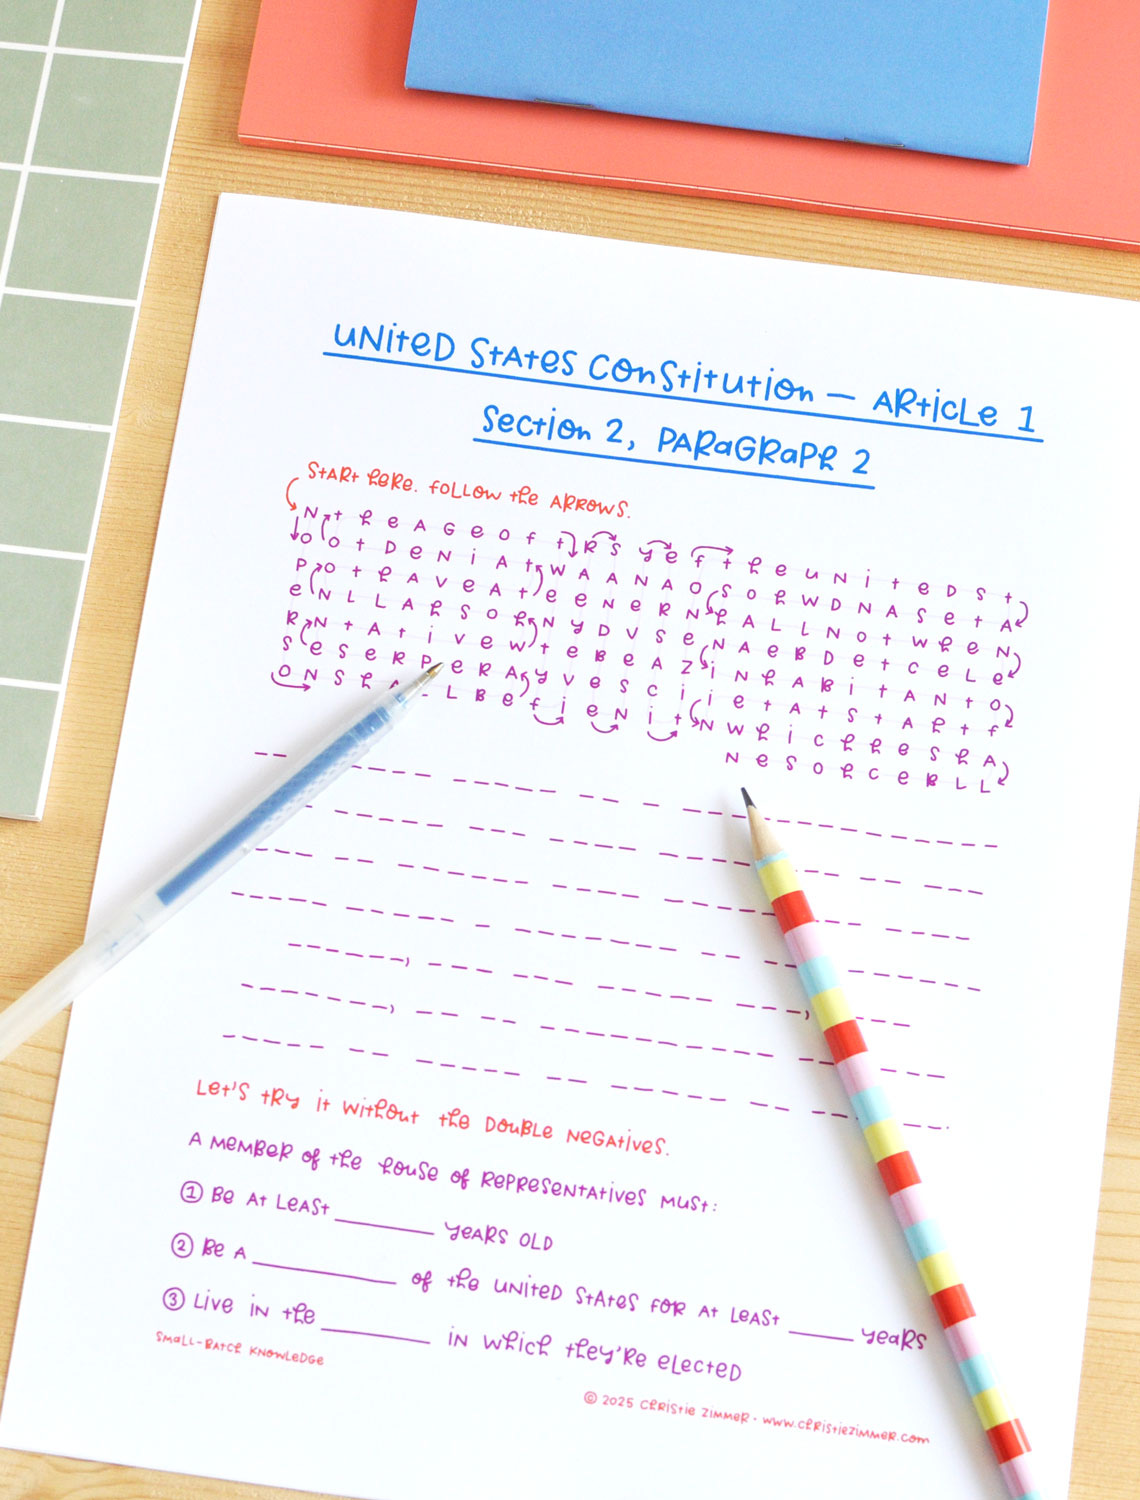 United States Constitution — Article 1
Section 2, Paragraph 2
Start here. Follow the arrows.
N t h e A G e o f t R S y e f t h e U N i t e D S t
O o t D e N i A t W A A N A O S o h W D N A S e t A
P o t h A v e A t e e N e R N h A L L N o t W h e N
e N L L A h S O h N y D v S e N A e B D e t c e L e
R N t A t i v e w t e B e A Z i N h A B i t A N t o
S e S e R P e R A y v e S c i i e t A t S t A h t f
O N S h A L B e f i e N i t N W h i c h h e S h A
N e S o h c e B L L
Let's try it without the double negatives.
A member of the House of Representatives must:
① Be at least ______ years old
② Be a ________ of the United States for at least ____ years
③ Live in the ______ in which they're elected
Small-Batch Knowledge
© 2025 Christie Zimmer · www.christiezimmer.com